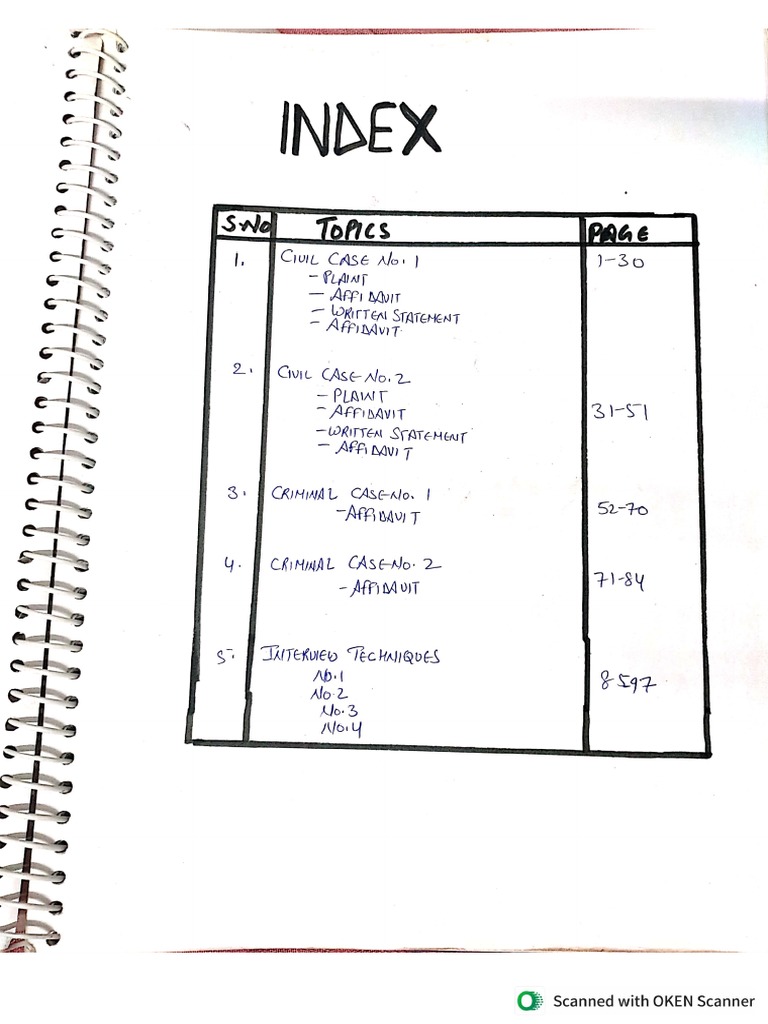 INDEX
S.NO TOPICS PAGE
1. CIVIL CASE NO. 1 1-30
- PLAINT
- AFFIDAVIT
- WRITTEN STATEMENT
- AFFIDAVIT.
2. CIVIL CASE NO. 2
- PLAINT
- AFFIDAVIT 31-51
- WRITTEN STATEMENT
- AFFIDAVIT
3. CRIMINAL CASE NO. 1
- AFFIDAVIT 52-70
4. CRIMINAL CASE NO. 2
- AFFIDAVIT 71-84
5. INTERVIEW TECHNIQUES
NO.1 8597
NO.2
NO.3
NO.4
Scanned with OKEN Scanner